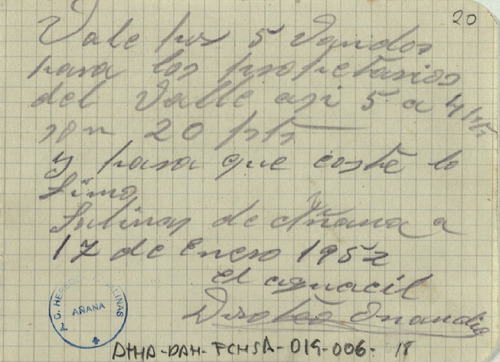 20
Vale por 5 Vandos
para los propetarios
del Valle asi 5 a 4 pts
son 20 pts
y para que coste lo
fimo
Salinas de Añana a
17 de Enero 1952
el aguacil
Doroteo
AÑANA
ATHA-DAH-FCHSA-019-006-18